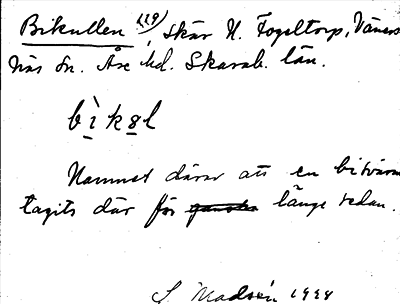 Bikullen (119), skär N. Fogeltorp, Väners
näs sn. Åse hd. Skarab. län.
bìkꞷl
Namnet därav att en bisvärm
tagits där för ganska länge sedan.
S. Madsén 1928